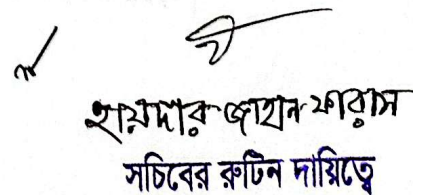 হায়দার জাহান ফারাস
সচিবের রুটিন দায়িত্বে